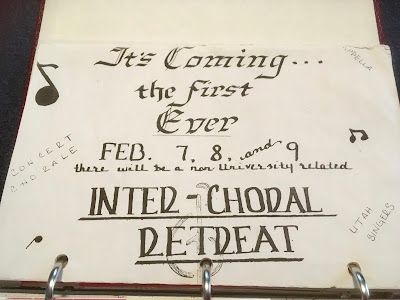 It's Coming...
the first
Ever
FEB. 7, 8, and 9
there will be a non University related
CONCERT
CHORALE
INTER-CHORAL
RETREAT
UTAH
SINGERS